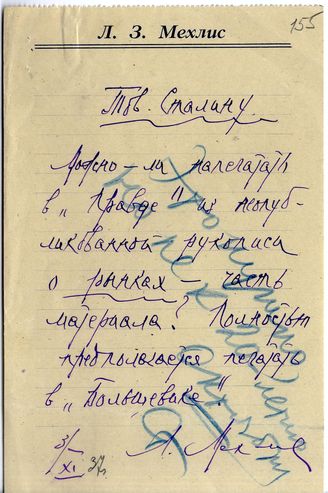 155
Л. З. Мехлис
Тов. Сталину
Можно-ли напечатать
в „Правде" из неопуб-
ликованной рукописи
о рынках — часть
материала? Полностью
предполагается печатать
в „Большевике".
3/XI 37.
Л. Мехлис